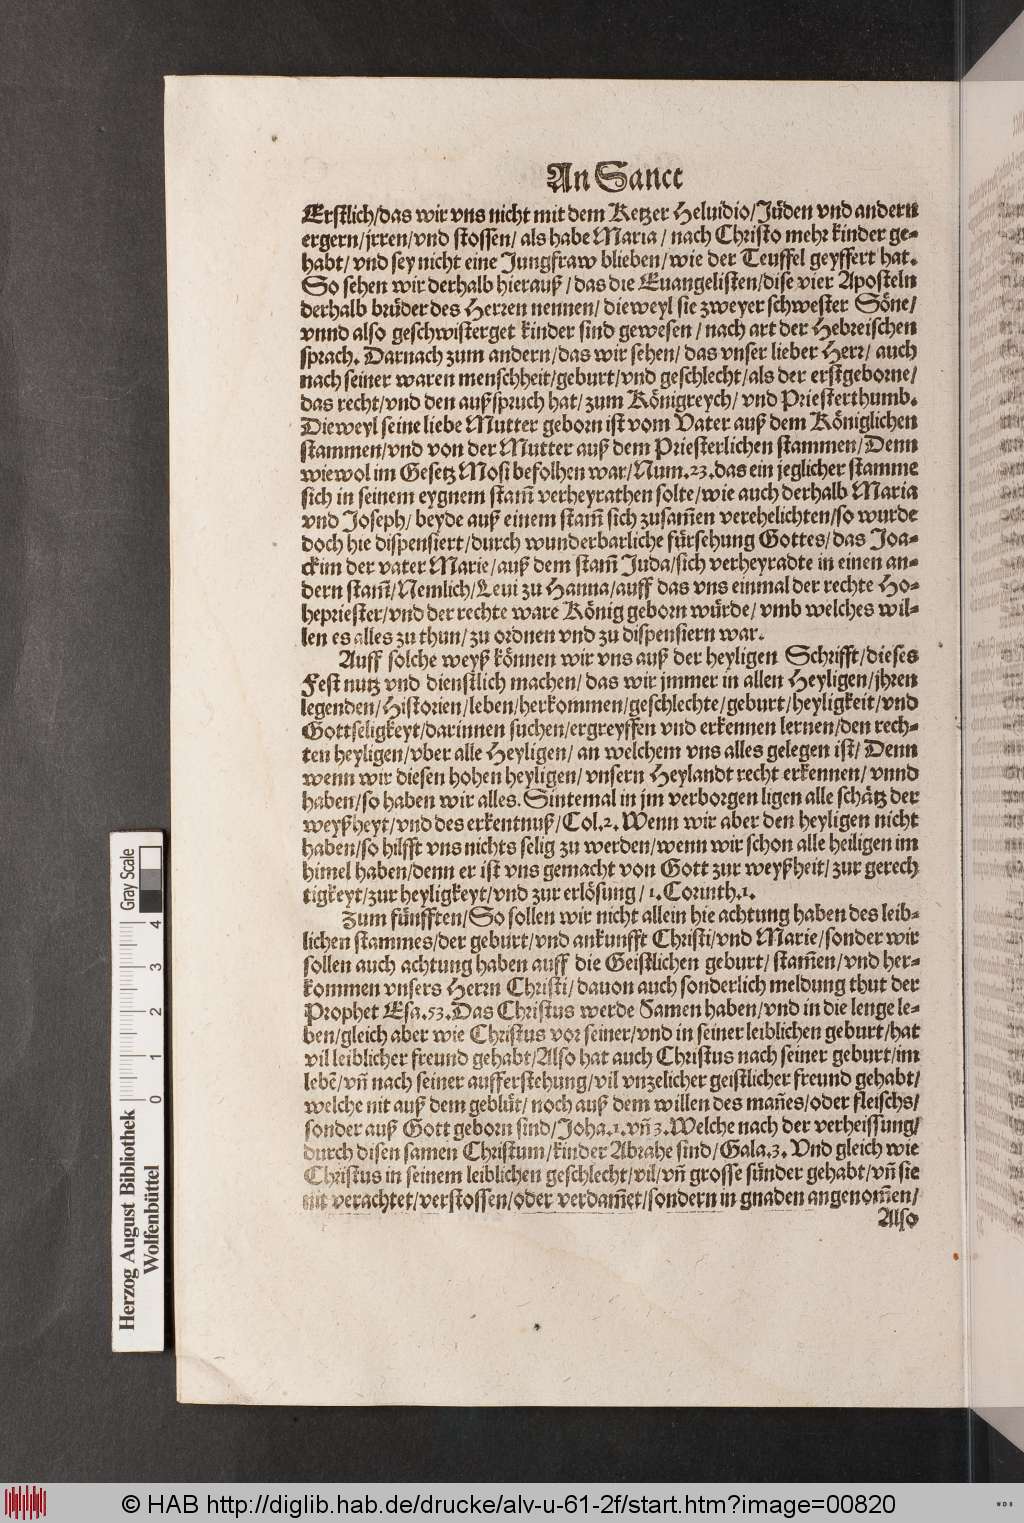 An Sanct
Erstlich/das wir vns nicht mit dem Ketzer Heluidio/Jüden vnd andern
ergern/jrren/vnd stossen/ als habe Maria / nach Christo mehr kinder ge-
habt/ vnd sey nicht eine Jungfraw blieben/ wie der Teuffel geyffert hat.
So sehen wir derhalb hierauß / das die Euangelisten/dise vier Aposteln
derhalb brüder des Herren nennen/ dieweyl sie zweyer schwester Söne/
vnnd also geschwisterget kinder sind gewesen / nach art der Hebreischen
sprach. Darnach zum andern/das wir sehen/ das vnser lieber Herr/ auch
nach seiner waren menschheit/geburt/vnd geschlecht/als der erstgeborne/
das recht/vnd den außspruch hat/ zum Königreych/ vnd Priesterthumb.
Dieweyl seine liebe Mutter geborn ist vom Vater auß dem Königlichen
stammen/vnd von der Mutter auß dem Priesterlichen stammen/Denn
wiewol im Gesetz Mosi befolhen war/Num.23.das ein jeglicher stamme
sich in seinem eygnem stam̃ verheyrathen solte/wie auch derhalb Maria
vnd Joseph/ beyde auß einem stam̃ sich zusam̃en verehelichten/so wurde
doch hie dispensiert/durch wunderbarliche fürsehung Gottes/das Joa-
ckim der vater Marie/auß dem stam̃ Juda/sich verheyradte in einen an-
dern stam̃/Nemlich/Leui zu Hanna/auff das vns einmal der rechte Ho-
hepriester/vnd der rechte ware König geborn würde/ vmb welches wil-
len es alles zu thun/ zu ordnen vnd zu dispensiern war.
Auff solche weyß können wir vns auß der heyligen Schrifft/dieses
Fest nutz vnd dienstlich machen/das wir jmmer in allen Heyligen/jhren
legenden/Historien/leben/herkommen/geschlechte/geburt/heyligkeit/vnd
Gottseligkeyt/darinnen suchen/ergreyffen vnd erkennen lernen/den rech-
ten heyligen/vber alle Heyligen/ an welchem vns alles gelegen ist/ Denn
wenn wir diesen hohen heyligen/ vnsern Heylandt recht erkennen/ vnnd
haben/so haben wir alles. Sintemal in jm verborgen ligen alle schätz der
weyßheyt/vnd des erkentnuß/Col.2. Wenn wir aber den heyligen nicht
haben/so hilfft vns nichts selig zu werden/wenn wir schon alle heiligen im
himel haben/denn er ist vns gemacht von Gott zur weyßheit/ zur gerech
tigkeyt/zur heyligkeyt/vnd zur erlösung/ 1. Corinth.1.
Zum fünfften/So sollen wir nicht allein hie achtung haben des leib-
lichen stammes/der geburt/vnd ankunfft Christi/vnd Marie/sonder wir
sollen auch achtung haben auff die Geistlichen geburt/ stam̃en/vnd her-
kommen vnsers Herrn Christi/ dauon auch sonderlich meldung thut der
Prophet Esa.53.Das Christus werde Samen haben/vnd in die lenge le-
ben/gleich aber wie Christus vor seiner/vnd in seiner leiblichen geburt/hat
vil leiblicher freund gehabt/Also hat auch Christus nach seiner geburt/im
lebẽ/vñ nach seiner aufferstehung/vil vnzelicher geistlicher freund gehabt/
welche nit auß dem geblüt/ noch auß dem willen des mañes/oder fleischs/
sonder auß Gott geborn sind/Joha.1.vñ 3.Welche nach der verheissung/
durch disen samen Christum/kinder Abrahe sind/Gala.3. Vnd gleich wie
Christus in seinem leiblichen geschlecht/vil/vñ grosse sünder gehabt/vñ sie
nit verachtet/verstossen/oder verdam̃et/sondern in gnaden angenom̃en/
Also
Gray Scale
4
3
2
1
0
Herzog August Bibliothek
Wolfenbüttel
© HAB http://diglib.hab.de/drucke/alv-u-61-2f/start.htm?image=00820
WDB